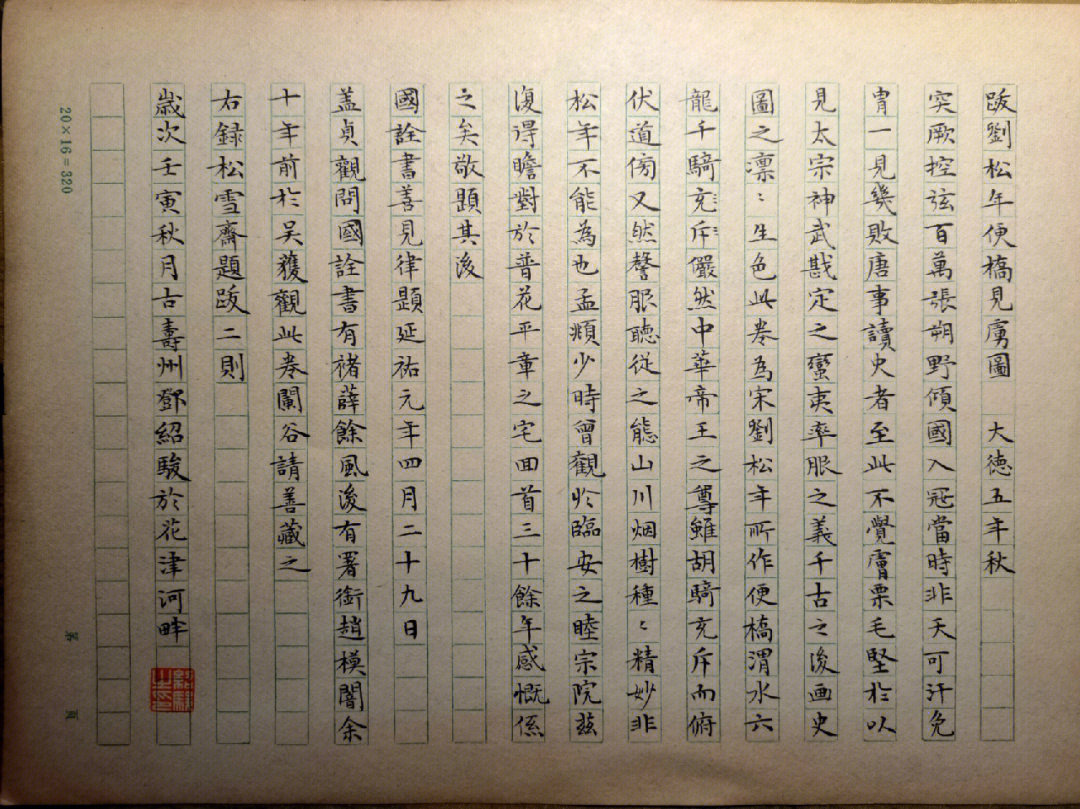 跋劉松年便橋見虜圖　大德五年秋
突厥控弦百萬張朔野傾國入冦當時非天可汗免
胄一見幾敗唐事讀史者至此不覺膚栗毛堅於以
見太宗神武戡定之蠻夷率服之義千古之後画史
圖之凛〻生色此卷為宋劉松年所作便橋渭水六
龍千騎充斥儼然中華帝王之尊雖胡騎充斥而俯
伏道傍又然讋服聽從之態山川烟樹種〻精妙非
松年不能為也孟頫少時曾觀於臨安之睦宗院茲
復得瞻對於普花平章之宅回首三十餘年感慨係
之矣敬題其後
國詮書善見律題延祐元年四月二十九日
盖貞觀間國詮書有褚薛餘風後有署銜趙模閻余
十年前於吴獲觀此卷闌谷請善藏之
右録松雪齋題跋二則
歲次壬寅秋月古壽州鄧紹駿於花津河畔
20×16=320
第　頁